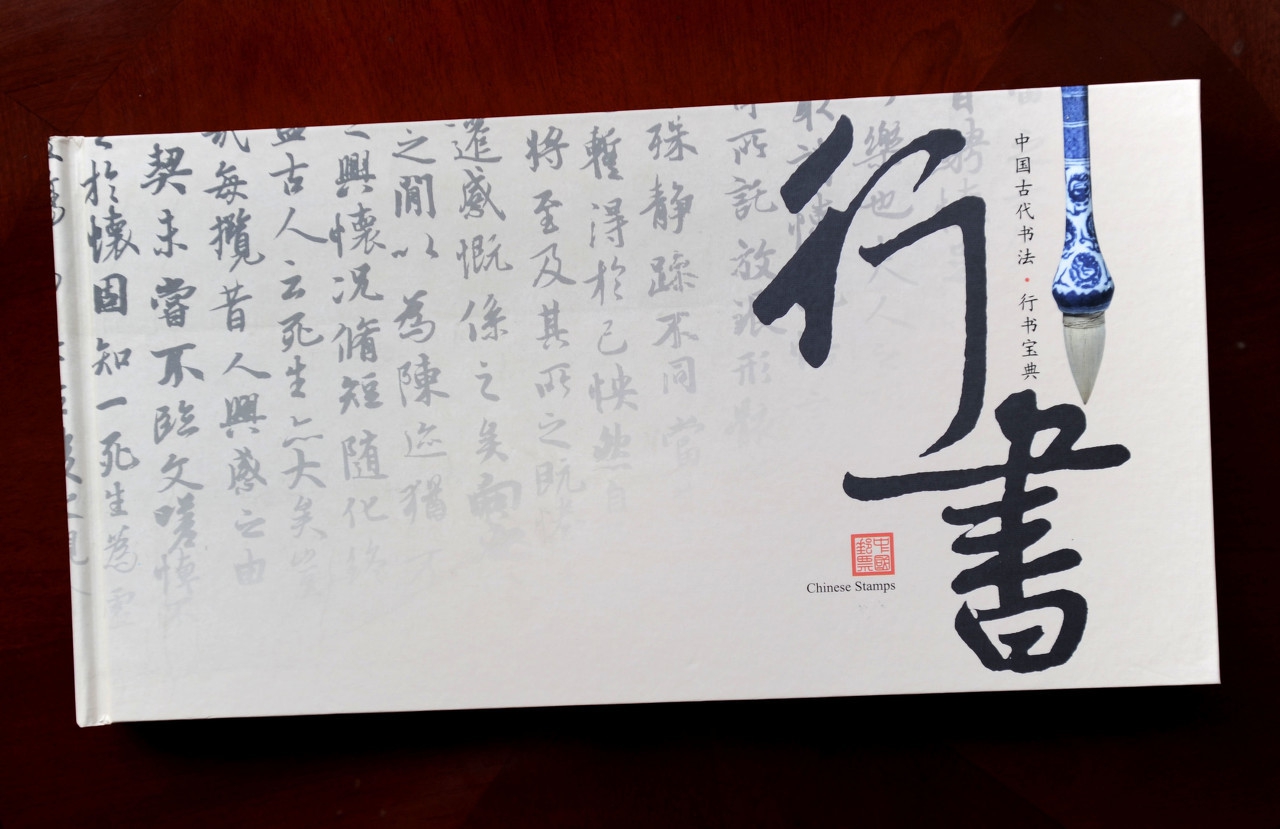 行書
中国古代书法·行书宝典
中國郵票
Chinese Stamps
所託放浪形骸
殊静躁不同當
暫得於己怏然自
將至及其所之既
遷感慨係之矣向
之閒以為陳迹猶
興懷況脩短隨化終
古人云死生亦大矣豈
每攬昔人興感之由
契未嘗不臨文嗟悼不
於懷固知一死生為虛